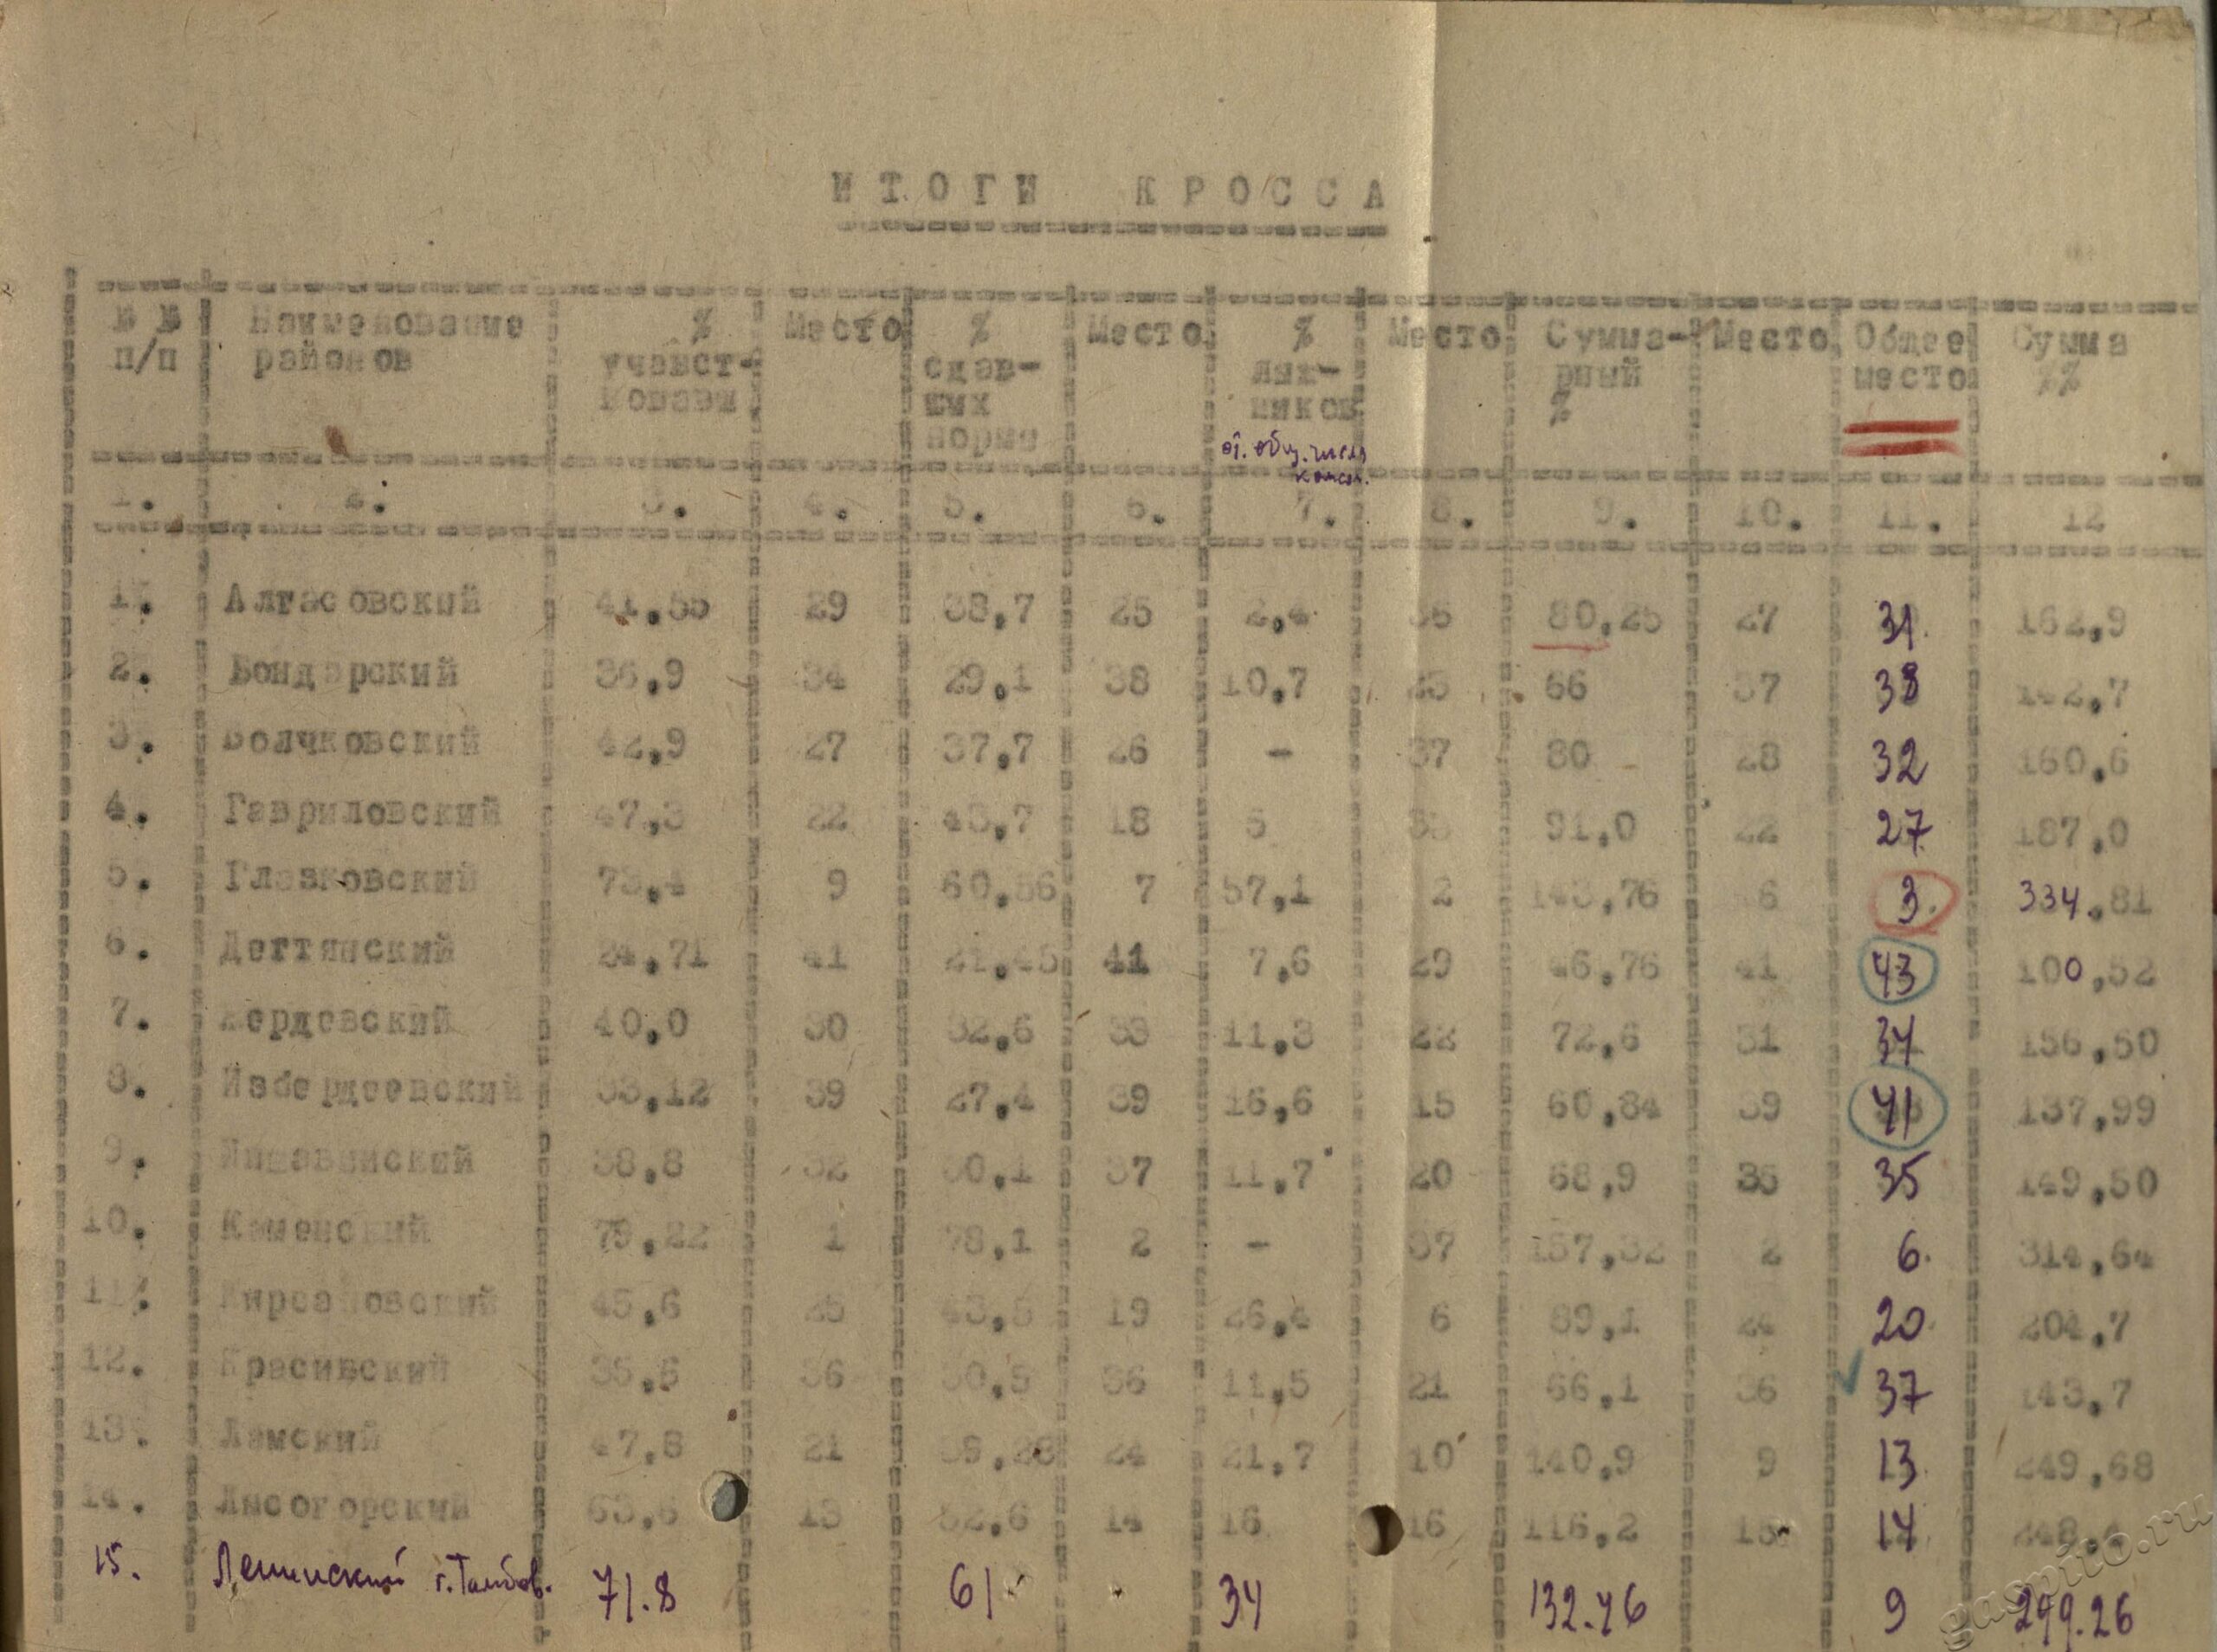 ИТОГИ КРОССА
№ № Наименование % Место % Место % Место Сумма- Место Общее Сумма
п/п районов участ- сдав- лыж- рный место %%
вовавш ших ников %
норме
от. общ. числа
комсом.
1. 2. 3. 4. 5. 6. 7. 8. 9. 10. 11. 12
1. Алгасовский 41,55 29 38,7 25 2,4 36 80,25 27 31. 162,9
2. Бондарский 36,9 34 29,1 38 10,7 23 66 37 38 142,7
3. Волчковский 42,9 27 37,7 26 - 37 80 28 32 160,6
4. Гавриловский 47,3 22 43,7 18 5 91,0 22 27 187,0
5. Глазковский 73,4 9 60,36 7 57,1 2 143,76 6 3. 334,81
6. Дегтянский 24,71 41 21,45 41 7,6 29 46,76 41 43 100,52
7. Жердевский 40,0 30 32,6 33 11,3 22 72,6 31 34 156,50
8. Избердеевский 33,12 39 27,4 39 16,6 15 60,84 39 41 137,99
9. Инжавинский 38,8 32 30,1 37 11,7 20 68,9 35 35 149,50
10. Каменский 79,22 1 78,1 2 - 37 157,32 2 6. 314,64
11. Кирсановский 45,6 25 43,5 19 26,4 6 89,1 24 20 204,7
12. Красивский 35,6 36 30,5 36 11,5 21 66,1 36 37 143,7
13. Ламский 47,8 21 39,28 24 21,7 10 140,9 9 13 249,68
14. Лысогорский 63,6 13 52,6 14 16 16 116,2 15 14 248,4
15. Ленинский г. Тамбов. 71.8 61 34 132.46 9 299.26
gaspito.ru